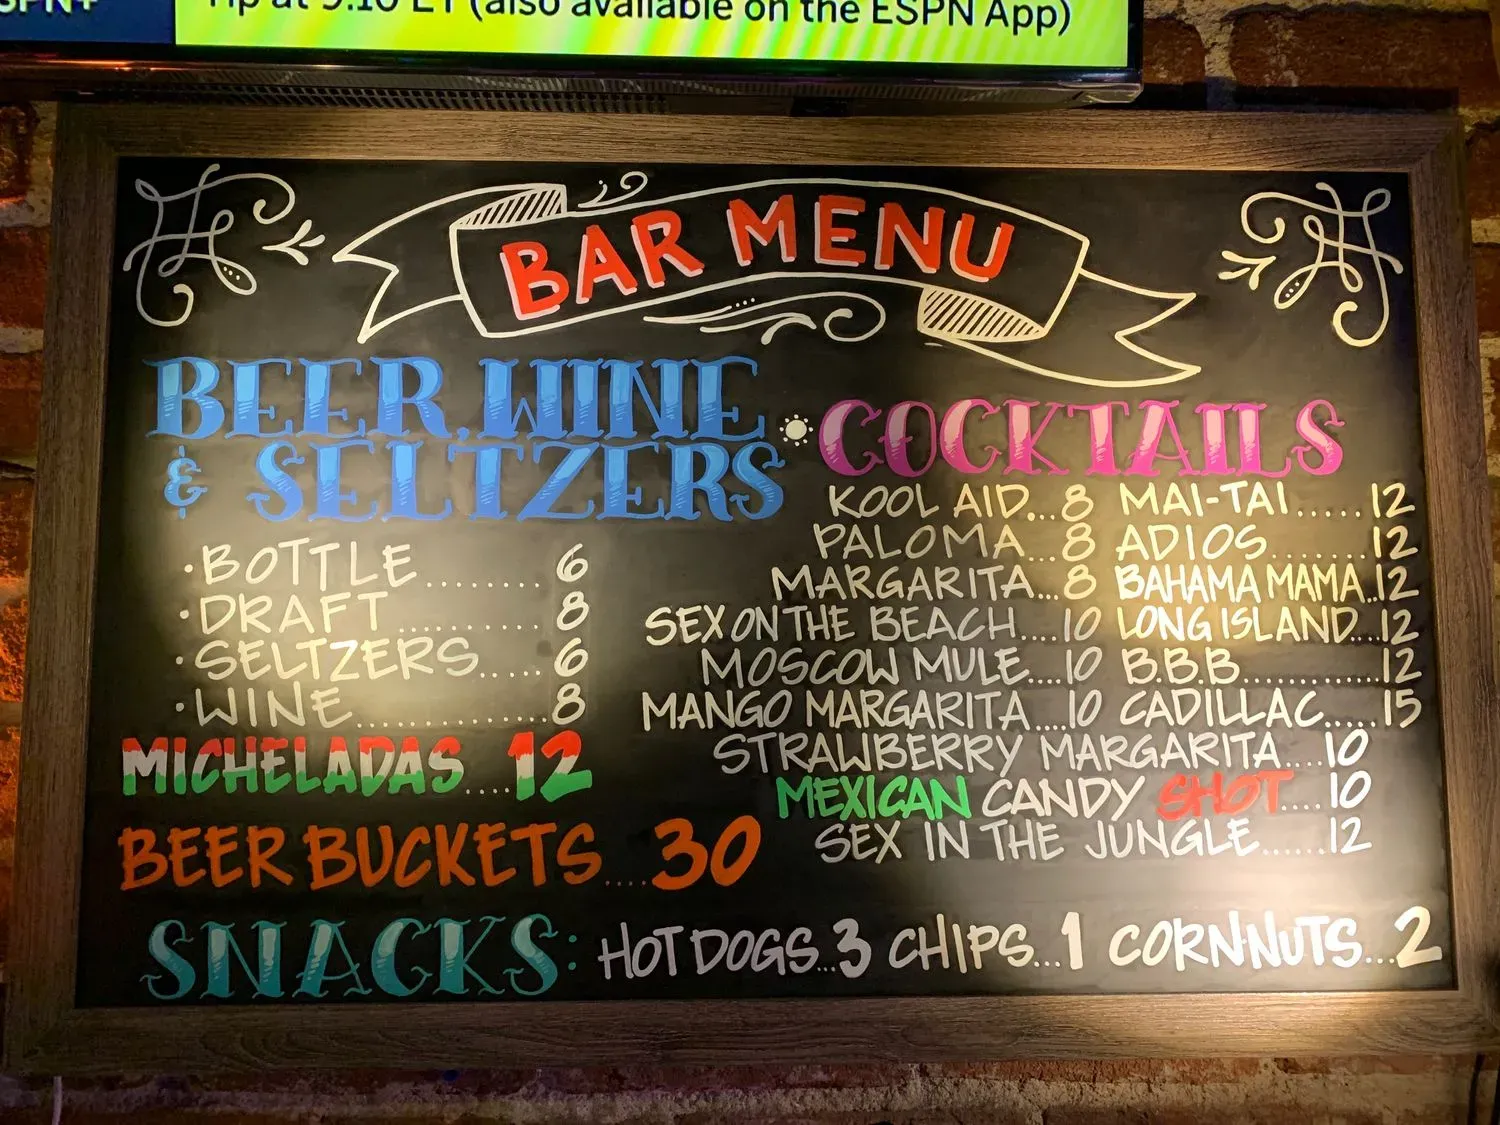 SPN+
Tip at 9:10 ET (also available on the ESPN App)
BAR MENU
BEER, WINE
& SELTZERS
·BOTTLE........ 6
·DRAFT.......... 8
·SELTZERS..... 6
·WINE..............8
MICHELADAS....12
BEER BUCKETS....30
COCKTAILS
KOOL AID...8 MAI-TAI.....12
PALOMA...8 ADIOS.......12
MARGARITA...8 BAHAMA MAMA..12
SEX ON THE BEACH....10 LONG ISLAND...12
MOSCOW MULE....10 B.B.B.............12
MANGO MARGARITA....10 CADILLAC.....15
STRAWBERRY MARGARITA....10
MEXICAN CANDY SHOT....10
SEX IN THE JUNGLE......12
SNACKS: HOT DOGS...3 CHIPS...1 CORN-NUTS...2